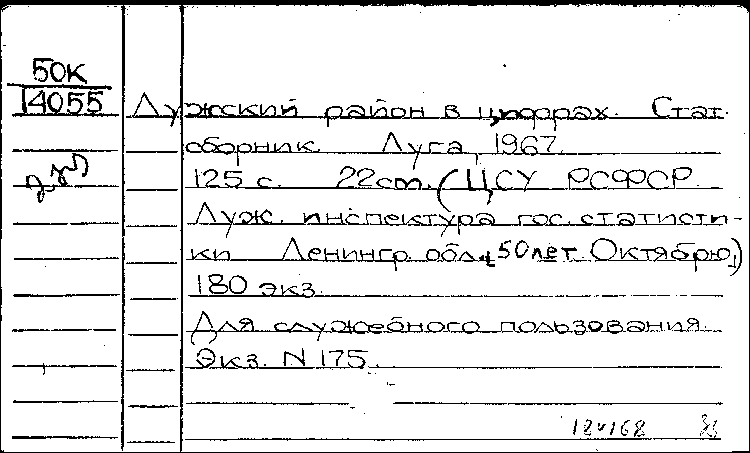 50К
14055
Лужский район в цифрах. Стат.
сборник. Луга, 1967.
125 с. 22 см. (ЦСУ РСФСР.
Луж. инспектура гос. статисти-
ки Ленингр. обл. 50 лет Октябрю)
180 экз.
Для служебного пользования.
Экз. N 175.